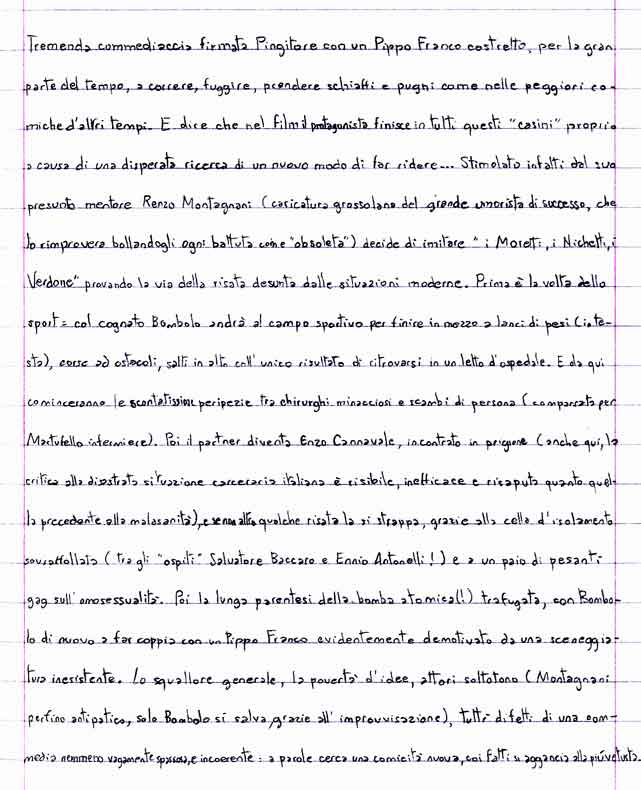 Tremenda commediaccia firmata Pingitore con un Pippo Franco costretto, per la gran
parte del tempo, a correre, fuggire, prendere schiaffi e pugni come nelle peggiori co-
miche d'altri tempi. E dice che nel film il protagonista finisce in tutti questi "casini" proprio
a causa di una disperata ricerca di un nuovo modo di far ridere... Stimolato infatti dal suo
presunto mentore Renzo Montagnani (caricatura grossolana del grande umorista di successo, che
lo rimprovera bollandogli ogni battuta come "obsoleta") decide di imitare "i Moretti, i Nichetti, i
Verdone" provando la via della risata desunta dalle situazioni moderne. Prima è la volta dello
sport: col cognato Bombolo andrà al campo sportivo per finire in mezzo a lanci di pesi (in te-
sta), corse ad ostacoli, salti in alto coll'unico risultato di ritrovarsi in un letto d'ospedale. E da qui
cominceranno le scontatissime peripezie tra chirurghi minacciosi e scambi di persona (comparsata per
Martufello infermiere). Poi il partner diventa Enzo Cannavale, incontrato in prigione (anche qui, la
critica alla disastrata situazione carceraria italiana è risibile, inefficace e risaputa quanto quel-
la precedente alla malasanità), e senz'altro qualche risata la si strappa, grazie alla cella d'isolamento
sovraffollata (tra gli "ospiti" Salvatore Baccaro e Ennio Antonelli!) e a un paio di pesanti
gag sull'omosessualità. Poi la lunga parentesi della bomba atomica(!) trafugata, con Bombo-
lo di nuovo a far coppia con un Pippo Franco evidentemente demotivato da una sceneggia-
tura inesistente. Lo squallore generale, la povertà d'idee, attori sottotono (Montagnani
perfino antipatico, solo Bombolo si salva, grazie all'improvvisazione), tutti difetti di una com-
media nemmeno vagamente spassosa, e incoerente: a parole cerca una comicità nuova, coi fatti si aggancia alla più vetusta.